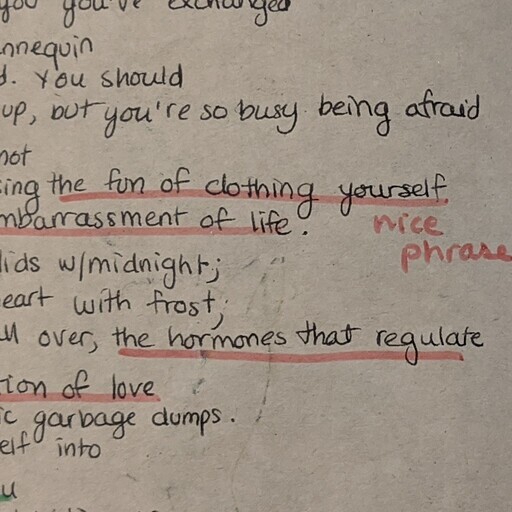 you you've exchanged
nnequin
d. You should
up, but you're so busy being afraid
not
ing the fun of clothing yourself
mbarrassment of life.
nice
phrase
lids w/midnight;
eart with frost;
over, the hormones that regulate
tion of love
ic garbage dumps.
elf into
u